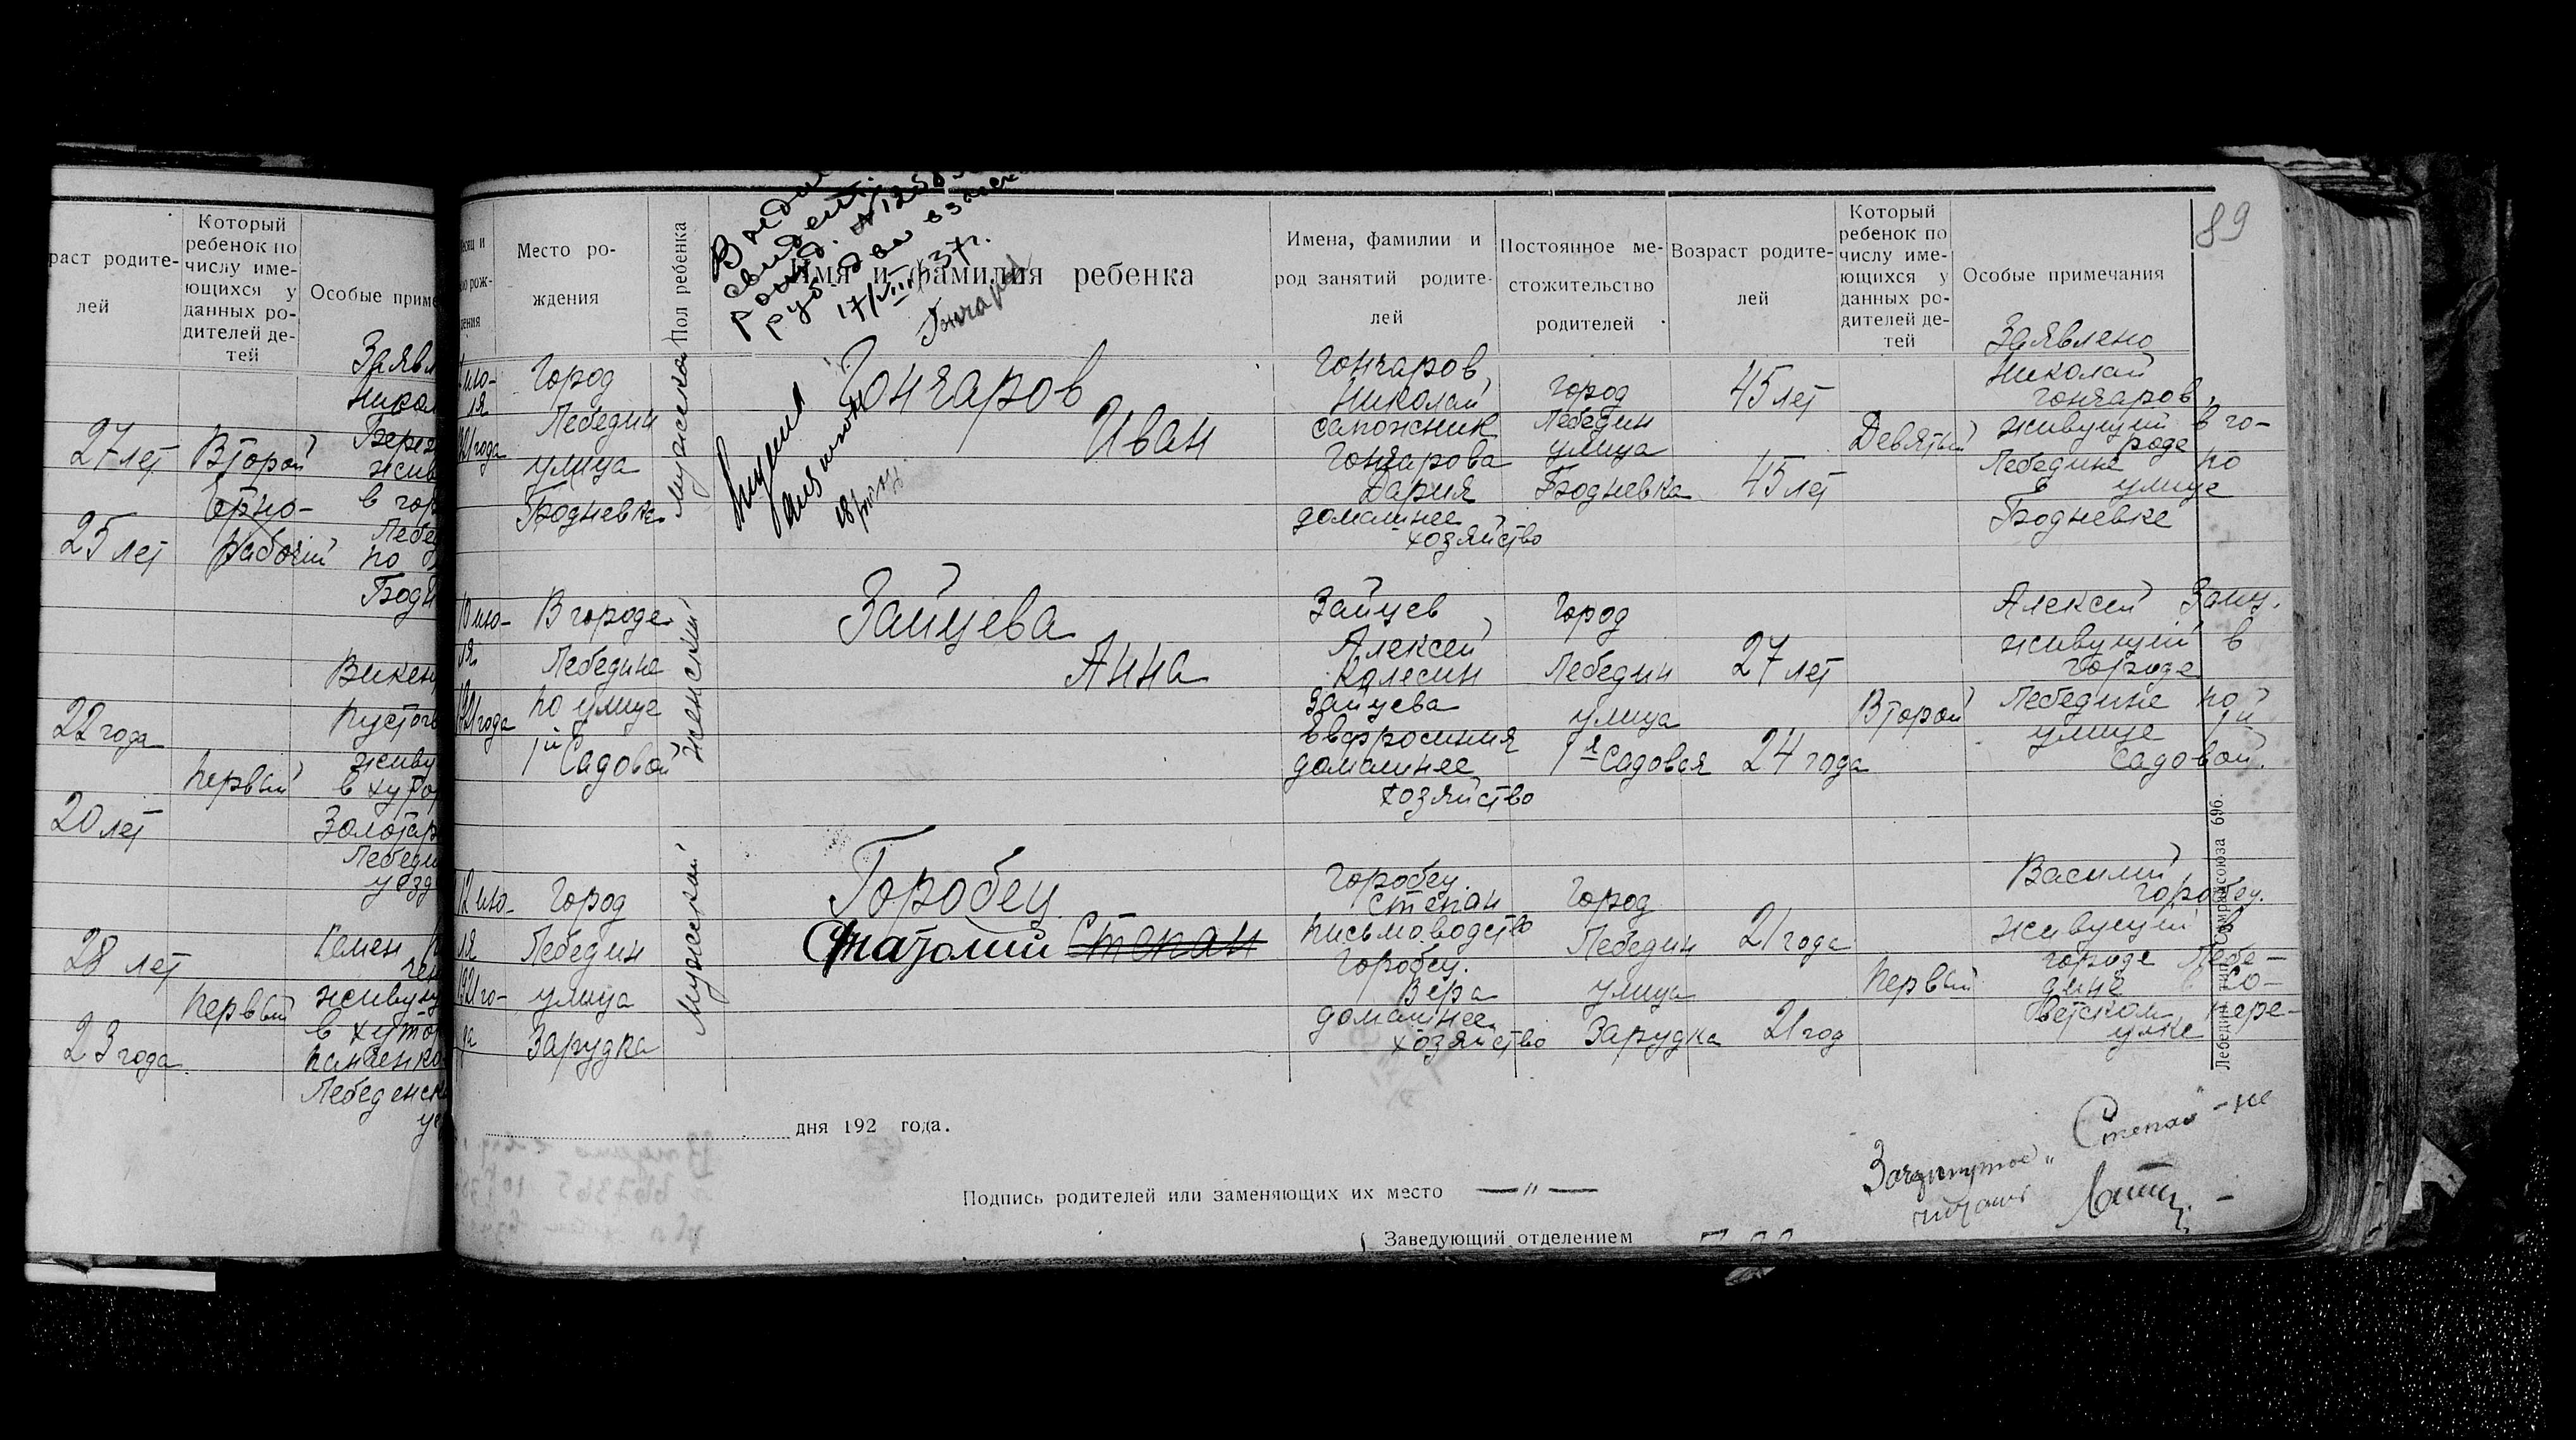 раст родите-
лей
Который
ребенок по
числу име-
ющихся у
данных ро-
дителей де-
тей
Особые приме
Заявл
27 лет
Второй
живу
в гор
Лебед
25 лет
рабочий
по
Викен
22 года
живу
Первый
в хутор
20 лет
Золотар
Лебеди
уезд
28 лет
Семен
Первый
живущ
в хутор
23 года
Лебеденск
89
есяц и
рож-
дения
Место ро-
ждения
Пол ребенка
Имя и фамилия ребенка
Имена, фамилии и
род занятий родите-
лей
Постоянное ме-
стожительство
родителей
Возраст родите-
лей
Который
ребенок по
числу име-
ющихся у
данных ро-
дителей де-
тей
Особые примечания
17/VIII 37г.
Гончаров
ию-
ля
921 года
Город
Лебедин
улица
Бродневка
Мужской
Гончаров
Иван
Гончаров
Николай
сапожник
Гончарова
Дария
домашнее
хозяйство
город
Лебедин
улица
Бродневка
45 лет
45 лет
Девятый
Заявлено
Николай
Гончаров,
живущий в го-
роде
Лебедине по
улице
Бродневке
10 ию-
ля
1921 года
В городе
Лебедине
по улице
1й Садовой
Женский
Зайцева
Анна
Зайцев
Алексей
Зайцева
Евфросиния
домашнее
хозяйство
Город
Лебедин
улица
1я Садовая
27 лет
24 года
Второй
Алексей Зайц.
живущий в
городе
Лебедине по
улице 1й
Садовой.
12 ию-
ля
1921 го-
да
Город
Лебедин
улица
Зарудка
Мужской
Горобец
Анатолий Степан
Горобец.
Степан
письмоводство
Горобец.
Вера
домашнее
хозяйство
Город
Лебедин
улица
Зарудка
21 года
21 год
Первый
Василий
Горобец.
живущий в
городе Лебе-
дине в Со-
ветском пере-
улке
Лебедин тип. Сумрайсоюза 696.
дня 192 года.
Подпись родителей или заменяющих их место —"—
Зачеркнутое „Степан" - не
читать
Заведующий отделением